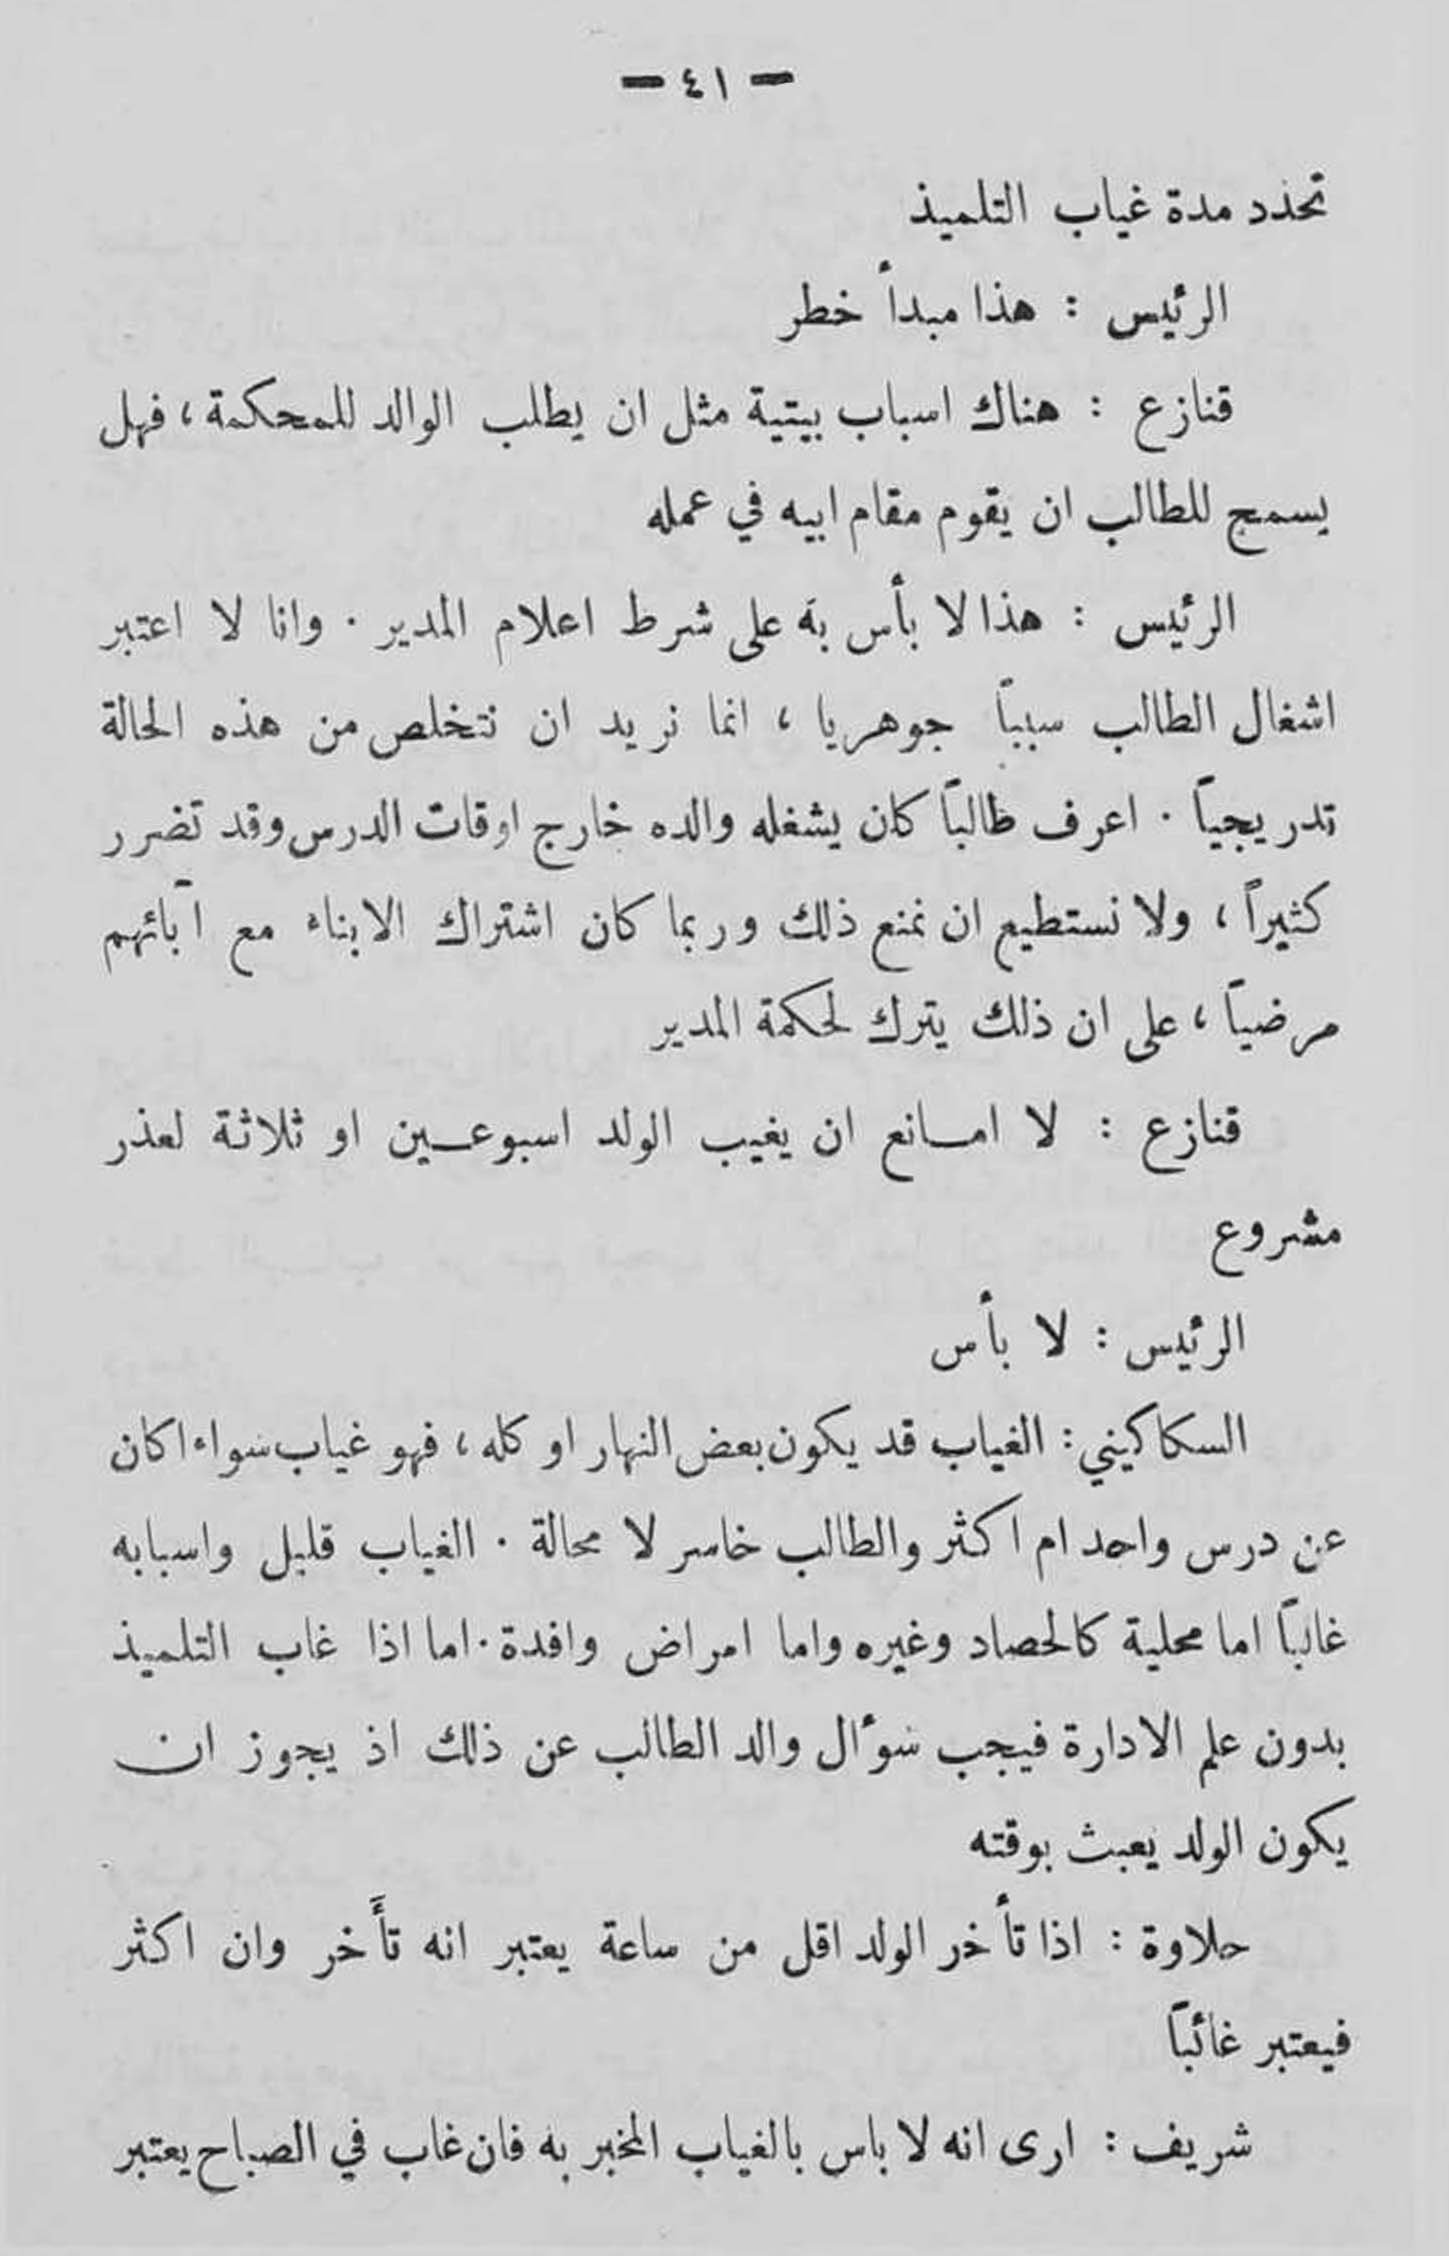 — ٤١ —
تحدد مدة غياب التلميذ
الرئيس : هذا مبدأ خطر
قنازع : هناك اسباب بيتية مثل ان يطلب الوالد للمحكمة ، فهل
يسمح للطالب ان يقوم مقام ابيه في عمله
الرئيس : هذا لا بأس به على شرط اعلام المدير . وانا لا اعتبر
اشغال الطالب سبباً جوهريا ، انما نريد ان نتخلص من هذه الحالة
تدريجياً . اعرف طالباً كان يشغله والده خارج اوقات الدرس وقد تضرر
كثيراً ، ولا نستطيع ان نمنع ذلك وربما كان اشتراك الابناء مع آبائهم
مرضياً ، على ان ذلك يترك لحكمة المدير
قنازع : لا امانع ان يغيب الولد اسبوعين او ثلاثة لعذر
مشروع
الرئيس : لا بأس
السكاكيني : الغياب قد يكون بعض النهار او كله ، فهو غياب سواء اكان
عن درس واحد ام اكثر والطالب خاسر لا محالة . الغياب قليل واسبابه
غالباً اما محلية كالحصاد وغيره واما امراض وافدة . اما اذا غاب التلميذ
بدون علم الادارة فيجب سؤال والد الطالب عن ذلك اذ يجوز ان
يكون الولد يعبث بوقته
حلاوة : اذا تأخر الولد اقل من ساعة يعتبر انه تأَخر وان اكثر
فيعتبر غائباً
شريف : ارى انه لا باس بالغياب المخبر به فان غاب في الصباح يعتبر